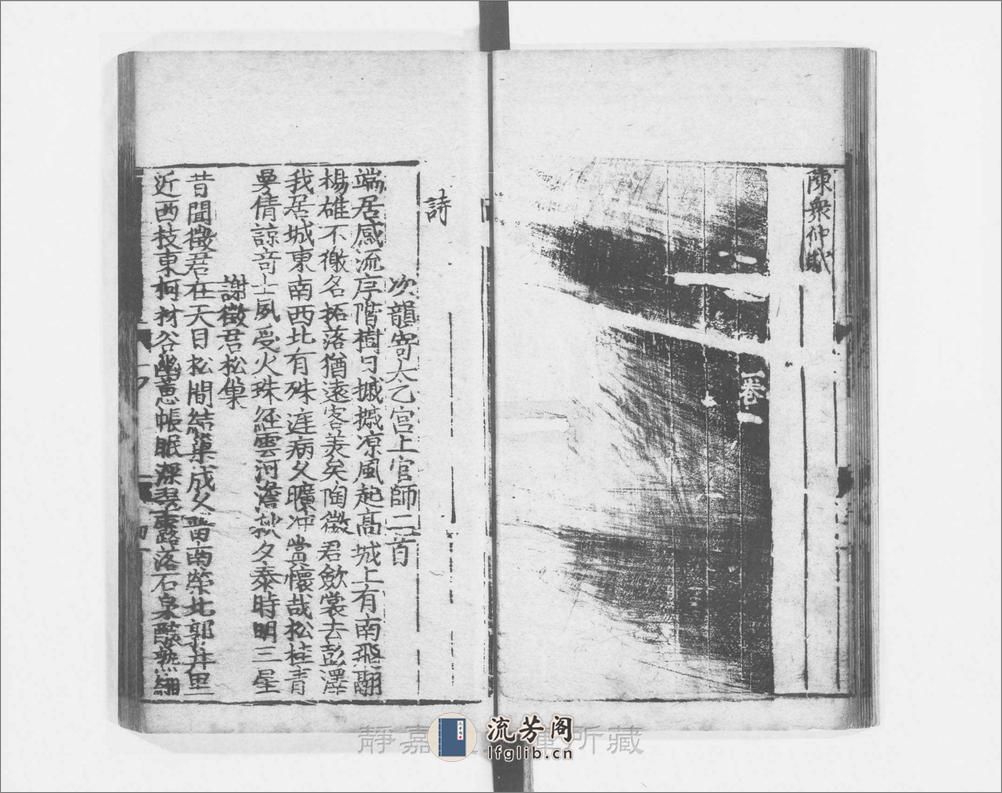 陳衆仲
卷一
詩
次韻寄太乙宫上官師二首
端居感流序階樹日摵摵凉風起髙城上有南飛翮
楊雄不徼名拓落猶遠客羙矣陶徵君歛裳去彭澤
我居城東南西北有殊涯病久曠冲賞懷哉松桂青
曼倩諒竒士夙受火珠經雲河澹秋夕泰時明三星
謝徵君松巢
昔聞徵君在天目松間結巢成久畱南榮北郭井里
近西枝東柯材谷幽蕙帳眠深翠露落石泉
靜嘉 所藏
流芳阁
lfglib.cn